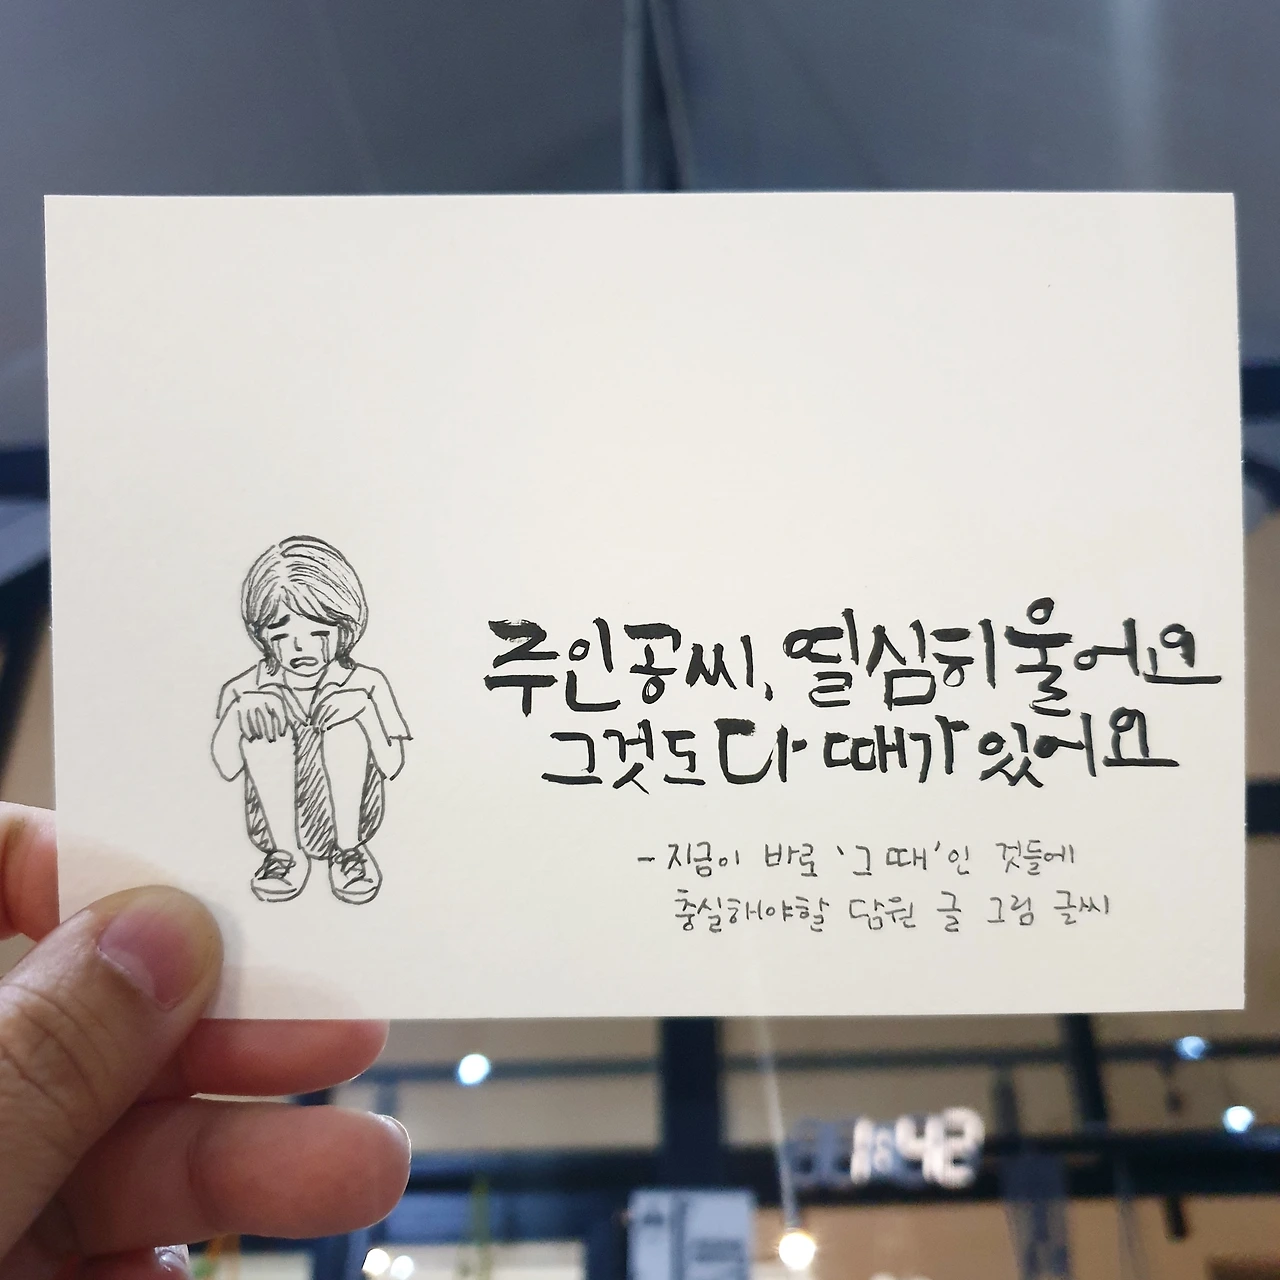 주인공씨, 열심히 울어요
그것도 다 때가 있어요
- 지금이 바로 '그 때'인 것들에
충실해야할 담원 글 그림 글씨
1:42